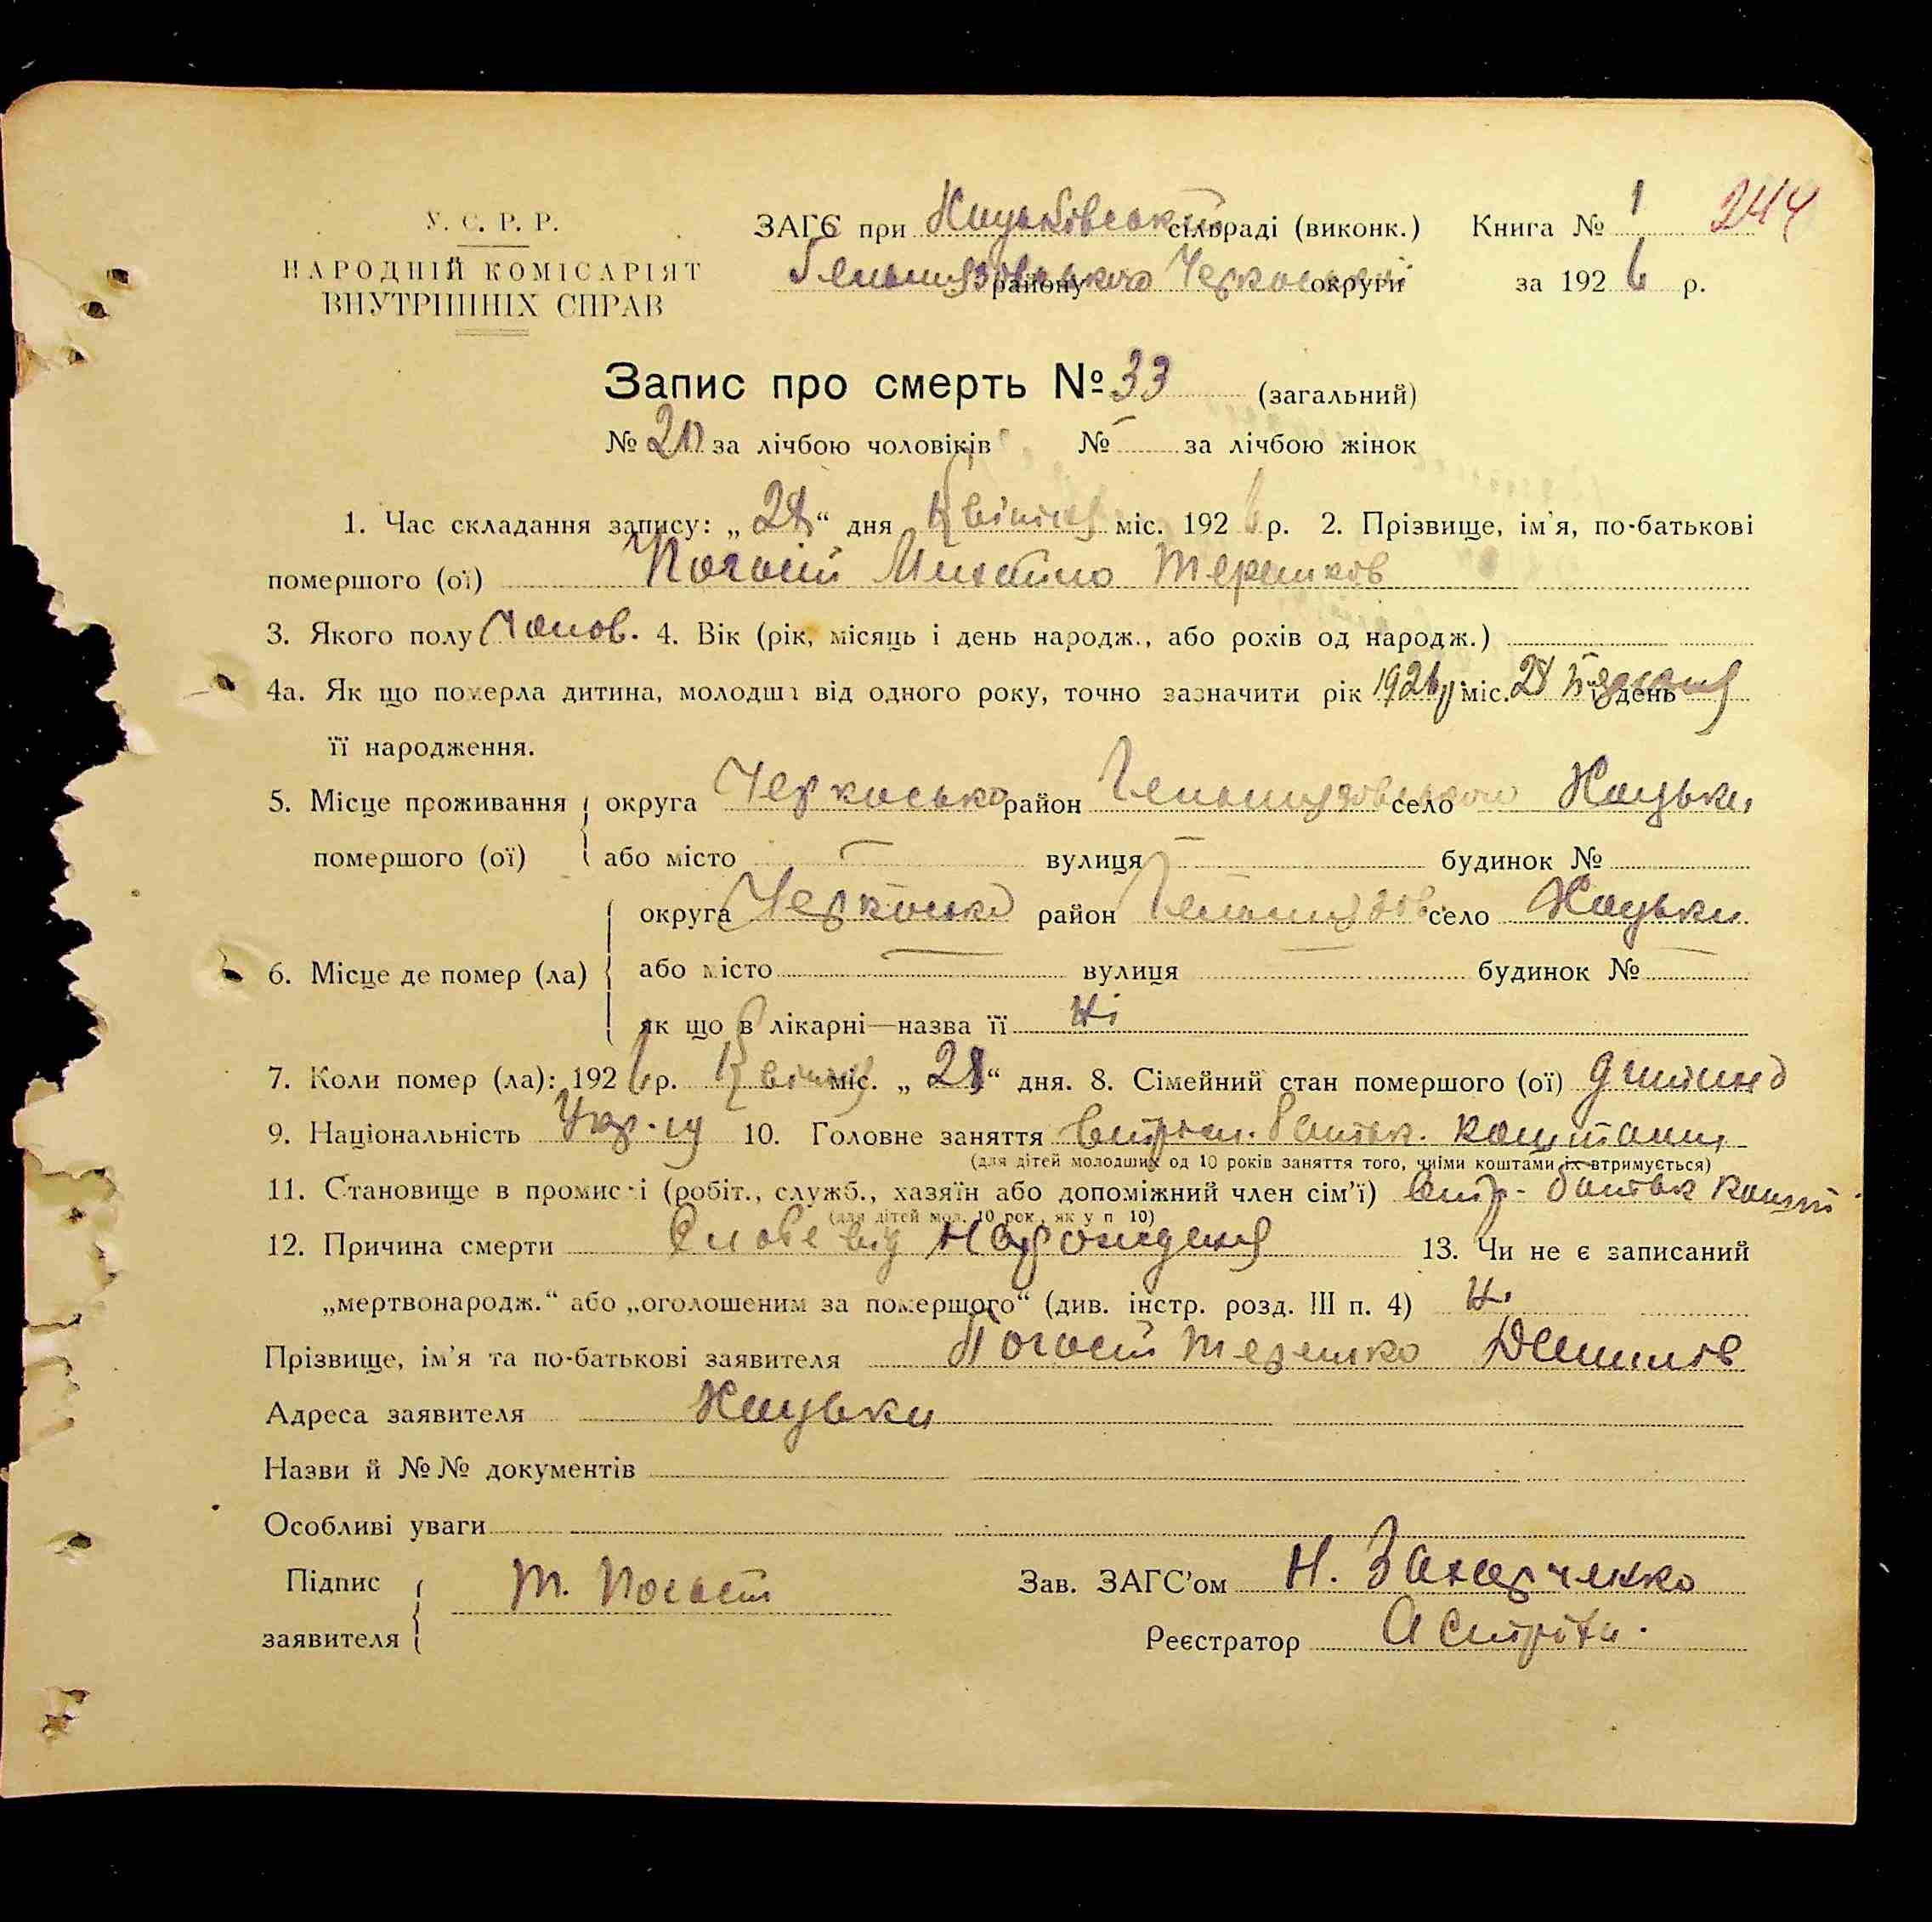 У. С. Р. Р.
НАРОДНІЙ КОМІСАРІЯТ
ВНУТРІШНІХ СПРАВ
ЗАГС при Нацьківській сільраді (виконк.) Книга № 1 244
Гельмязівського району Черкаської округи за 1926 р.
Запис про смерть № 33 (загальний)
№ 20 за лічбою чоловіків № — за лічбою жінок
1. Час складання запису: „28“ дня Квітня міс. 1926 р. 2. Прізвище, ім'я, по-батькові
помершого (ої) Погасій Михайло Терешков
3. Якого полу Чолов. 4. Вік (рік, місяць і день народж., або років од народж.)
4а. Як що померла дитина, молодша від одного року, точно зазначити рік 1926 міс. 28 і день
її народження.
5. Місце проживання округа Черкасько район Гельмязовського село Нацьки
помершого (ої) або місто — вулиця — будинок №
округа Черкаська район Гельмязов село Нацьки
6. Місце де помер (ла) або місто — вулиця — будинок № —
як що в лікарні—назва її Ні
7. Коли помер (ла): 1926 р. Квітня міс. „28“ дня. 8. Сімейний стан помершого (ої) дитина
9. Національність Укр-ця 10. Головне заняття втрим. батьк. коштами
(для дітей молодших од 10 років заняття того, чиїми коштами їх втримується)
11. Становище в промислі (робіт., служб., хазяїн або допоміжний член сім'ї) втр- батьк кошт
(для дітей мол. 10 рок., як у п 10)
12. Причина смерти Слабе від Народження 13. Чи не є записаний
„мертвонародж.“ або „оголошеним за помершого“ (див. інстр. розд. III п. 4) Ні
Прізвище, ім'я та по-батькові заявителя Погасій Терешко
Адреса заявителя Нацьки
Назви й №№ документів
Особливі уваги
Підпис Т. Погасій Зав. ЗАГС'ом Н. Захарченко
заявителя Реєстратор А